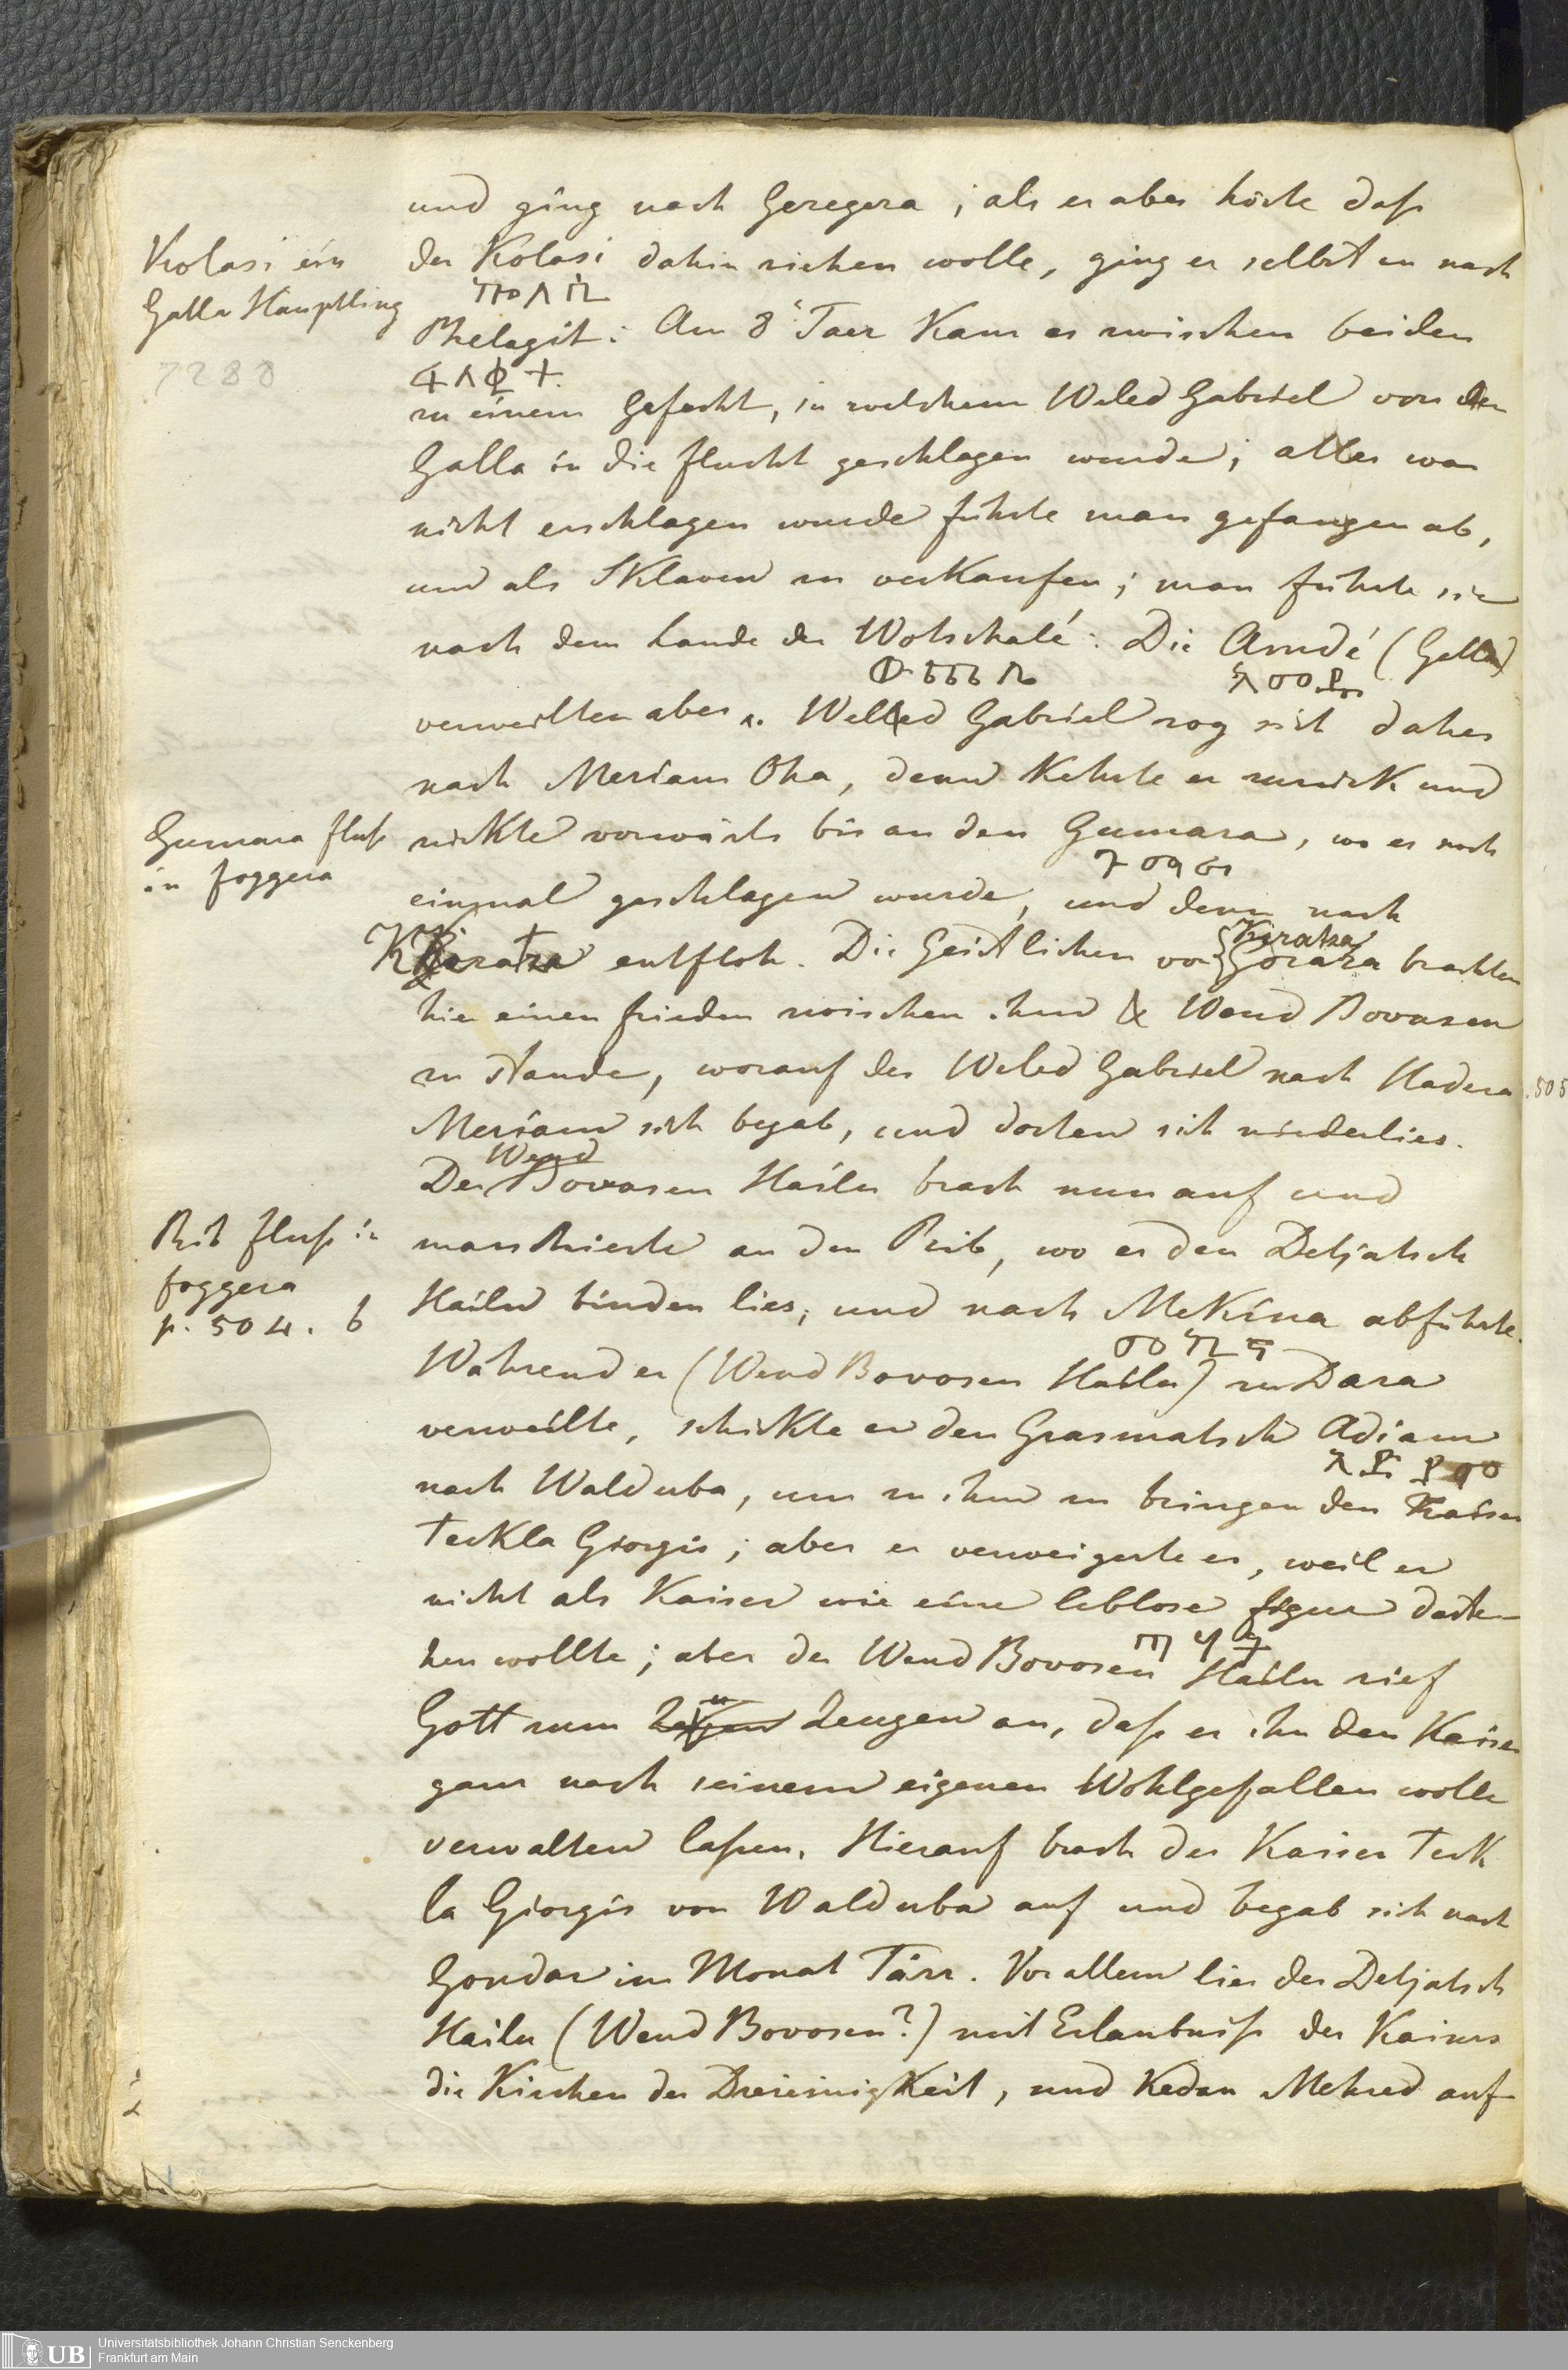 und ging nach Geregera; als er aber hörte daß
Kolasi ein
Galla Häuptling
7288
der Kolasi dahin ziehen wolle, ging er selbst en nach
ኮላሲ
Phelagit: Am 8 Taer Kam es zwischen beiden
ፈላቂት
zu einem Gefecht, in welchem Weled Gabriel von den
Galla in die flucht geschlagen wurde; alles was
nicht erschlagen wurde führte man gefangen ab,
und als SKlaven zu verKaufen; man führte sie
nach dem Lande der Wotschalé: Die Amdé (Galla)
ውጫሌ አመዴ
verweilten aber .. Weled Gabriel zog sich daher
nach Meriam Oha, dann Kehrte er zurück und
Gumara fluß
in foggera
rückte vorwärts bis an den Gumara, wo er noch
ጉማራ
einmal geschlagen wurde, und dann nach
Kiratza entfloh. Die Geistlichen von Goraza brachten
Kiratza
hier einen frieden zwischen ihm & Wend Bovasen
zu stande, worauf der Weled Gabriel nach Hadera
.505
Meriam sich begab, und dorten sich niederlies.
Wend
Der Bovasen Hailu brach nun auf und
Reb fluß in
foggera
p. 504. b
marschierte an den Reib, wo er den Detjatsch
Hailu binden lies, und nach MeKina abführte.
መኪና
Während er (Wend Bovosen Hailu) zu Dara
verweilte, schickte er den Grasmatsch Adiam
አዲያመ
nach Walduba, um zu ihm zu bringen den Kaiser
TeeKla Giorgis; aber er verweigerte es, weil er
nicht als Kaiser wie eine leblose figur daste-
hen wollte; aber der Wend Bovosen Hailu rief
Gott zum Zeugen an, daß er ihn den Kaiser
ganz nach seinem eigenen Wohlgefallen wolle
verwalten laßen. Hierauf brach der Kaiser TeeK
la Giorgis von Walduba auf und begab sich nach
Gondar im Monat Tärr. Vor allem lies der Detjatsch
Hailu (Wend Bovosen?) mit Erlaubniß des Kaisers
die Kirchen der DreieinigKeit, und Kedan Mehred auf-
UB Universitätsbibliothek Johann Christian Senckenberg
Frankfurt am Main